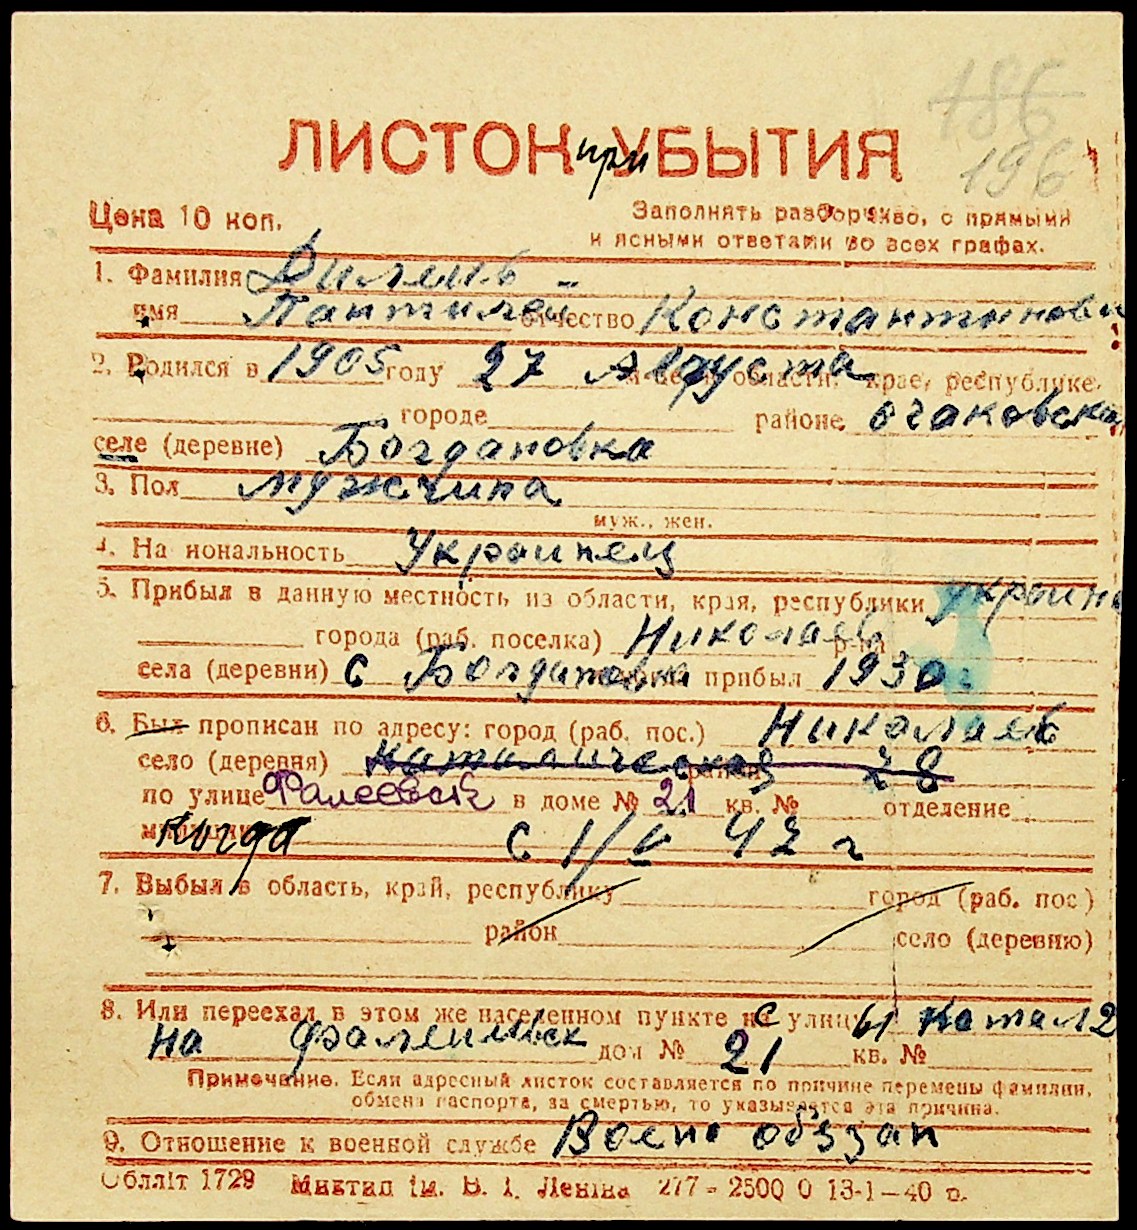 186
196
ЛИСТОК при УБЫТИЯ
Цена 10 коп.
Заполнять разборчиво, с прямыми
и ясными ответами во всех графах.
1. Фамилия
имя Пантилей отчество Константинови
2. Родился в 1905 году 27 Августа области, крае, республике
городе районе очаковска
селе (деревне) Богдановка
3. Пол мужчина
муж., жен.
4. На иональность Украинец
5. Прибыл в данную местность из области, края, республики украин
города (раб. поселка) Николаев р-на
села (деревни) с Богдановки прибыл 1930 г
6. Был прописан по адресу: город (раб. пос.) Николаев
село (деревня) католическая район 28
по улице Фалеевск в доме № 21 кв. № отделение
милиции когда с 1/V 42 г
7. Выбыл в область, край, республику город (раб. пос)
район село (деревню)
8. Или переехал в этом же населенном пункте на улицу с 61 Катал 2
на дом № 21 кв. №
Примечание. Если адресный листок составляется по причине перемены фамилии,
обмена паспорта, за смертью, то указывается эта причина.
9. Отношение к военной службе Воено обязан
Облліт 1729 Миктип ім. В. І. Леніна 277 - 2500 0 13-1-40 р.